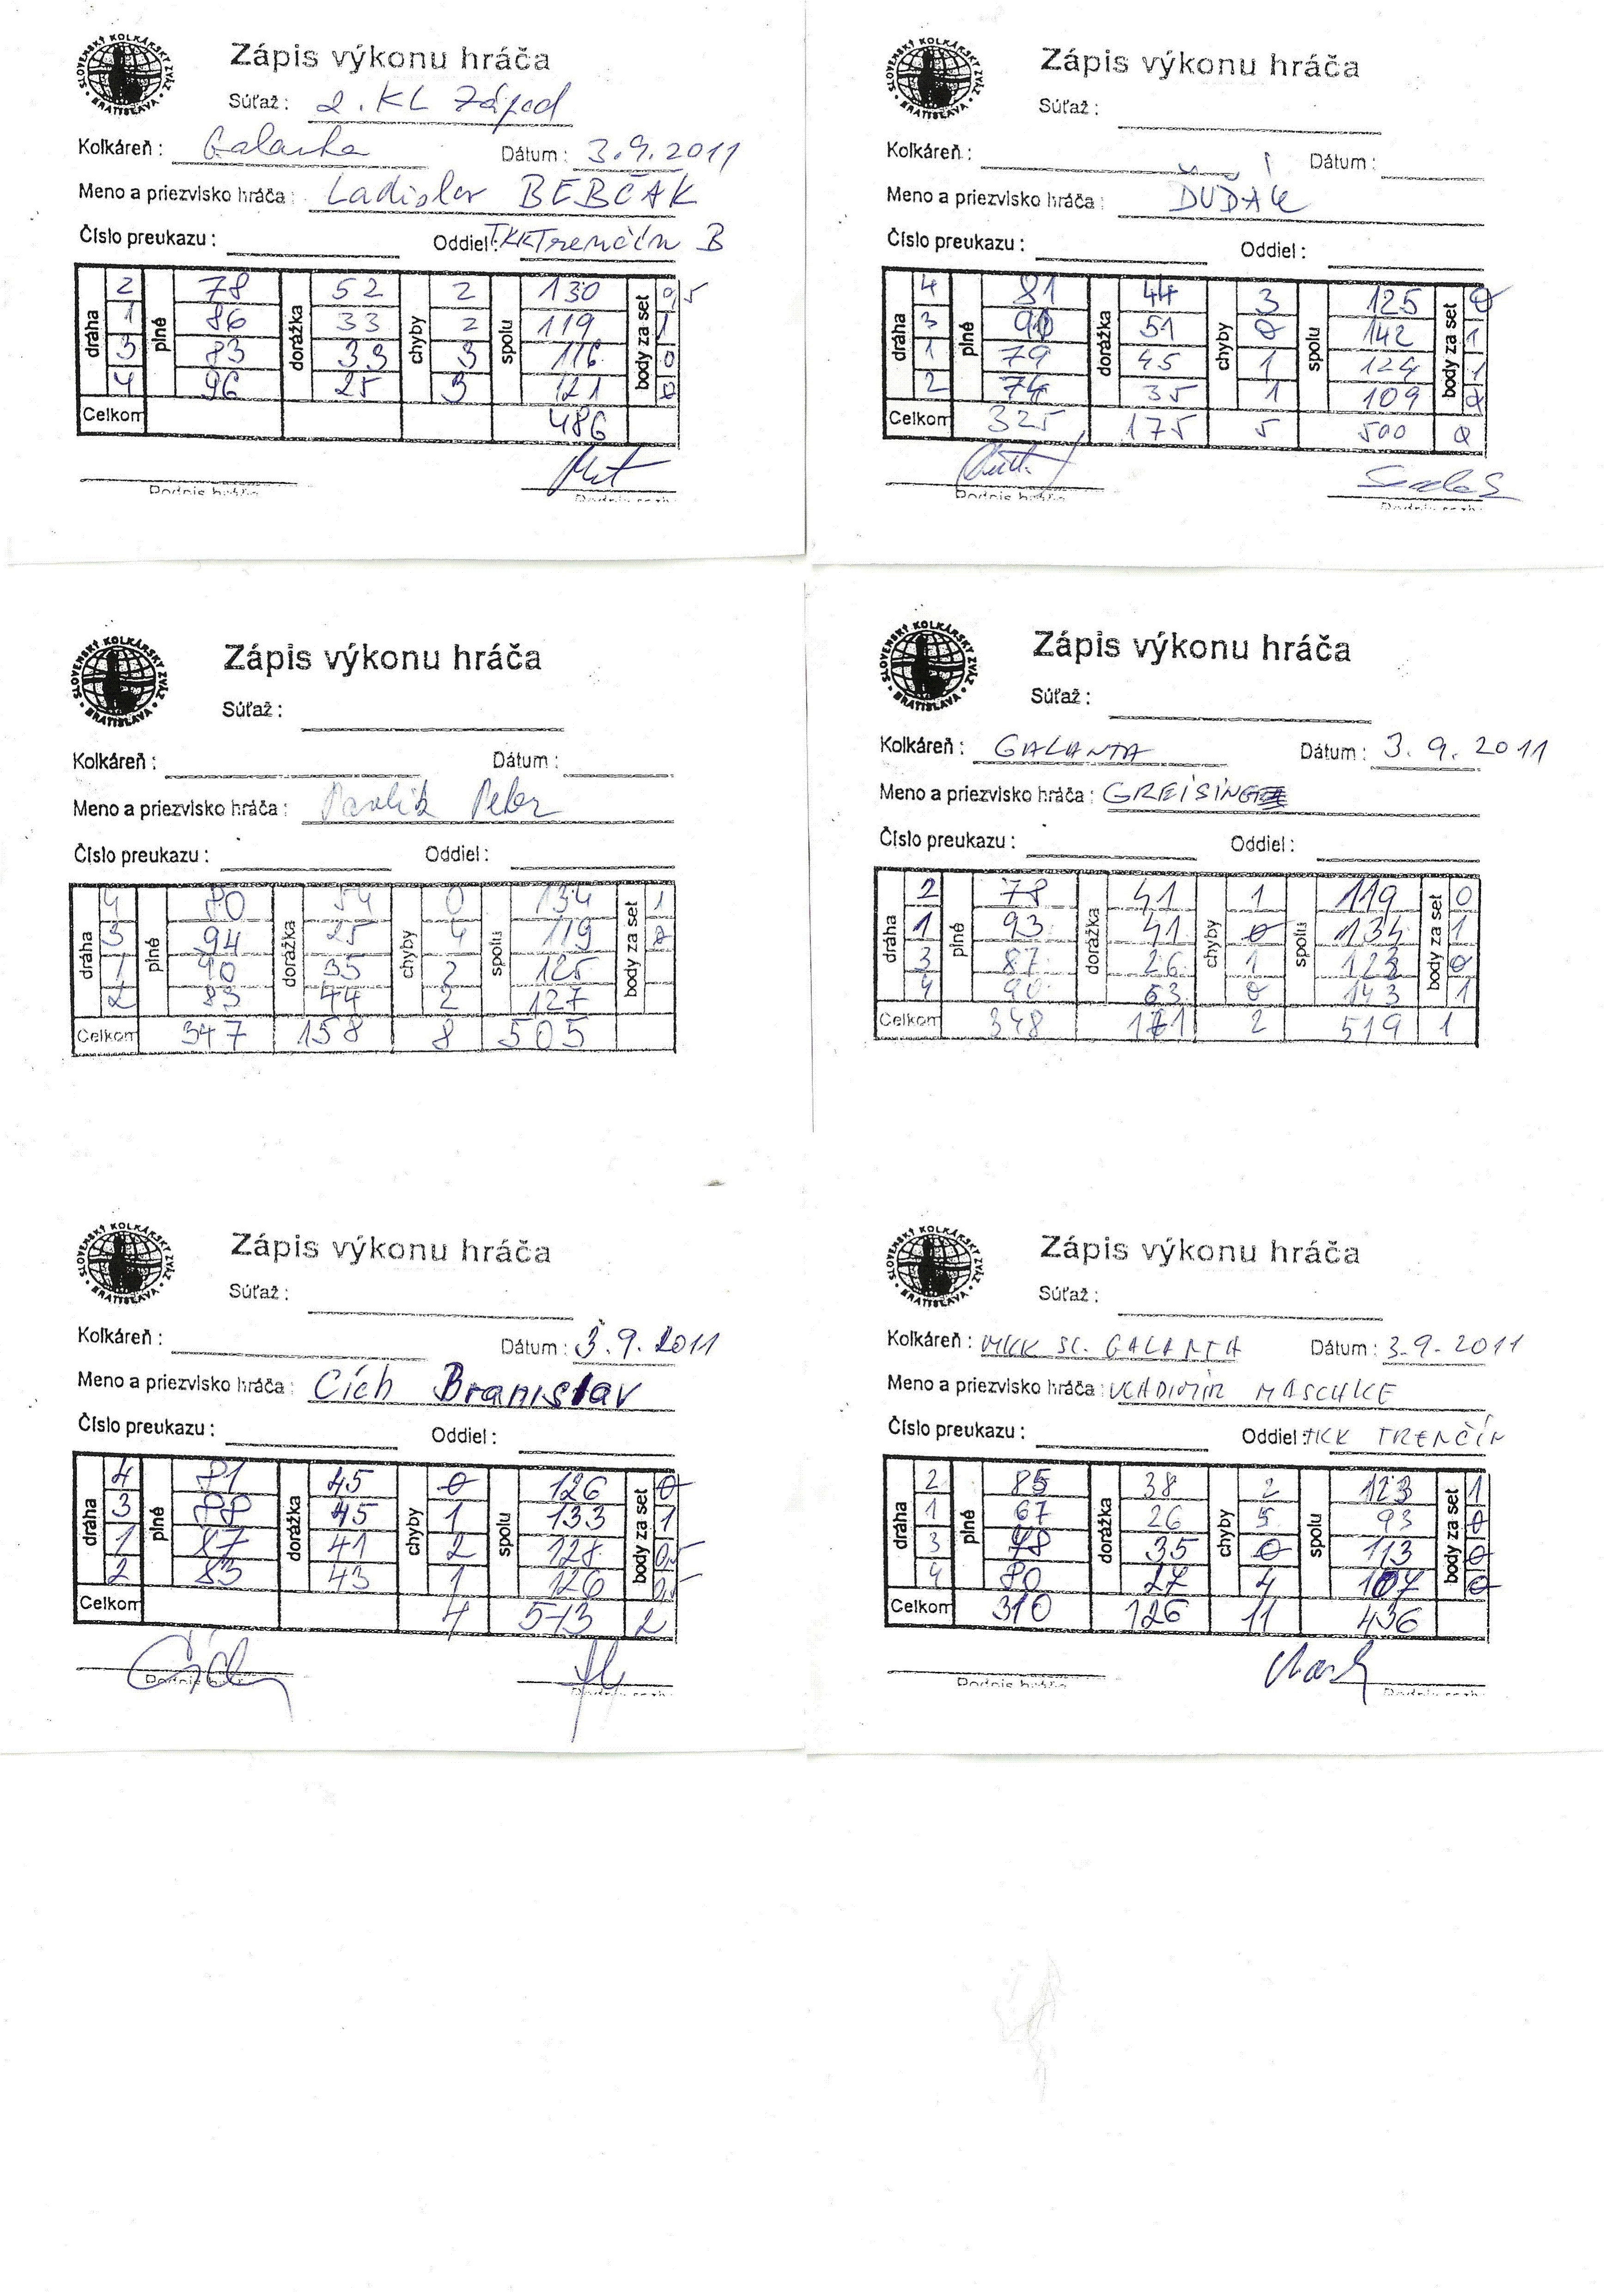 SLOVENSKÝ KOLKÁRSKY ZVÄZ • BRATISLAVA •
Zápis výkonu hráča
Súťaž : 2. KL Západ
Kolkáreň : Galanta Dátum : 3.9.2011
Meno a priezvisko hráča : Ladislav BEBČAK
Číslo preukazu : Oddiel : TKK Trenčín B
dráha plné dorážka chyby spolu body za set
2 78 52 2 130 0,5
1 86 33 2 119 1
3 83 33 3 116 0
4 96 25 3 121 0
Celkom 486
Podpis hráča
SLOVENSKÝ KOLKÁRSKY ZVÄZ • BRATISLAVA •
Zápis výkonu hráča
Súťaž :
Kolkáreň : Dátum :
Meno a priezvisko hráča : DUDÁK
Číslo preukazu : Oddiel :
dráha plné dorážka chyby spolu body za set
4 81 44 3 125 0
3 91 51 0 142 1
1 79 45 1 124 1
2 74 35 1 109 0
Celkom 325 175 5 500 0
Podpis hráča
SLOVENSKÝ KOLKÁRSKY ZVÄZ • BRATISLAVA •
Zápis výkonu hráča
Súťaž :
Kolkáreň : Dátum :
Meno a priezvisko hráča : Pavlik Peter
Číslo preukazu : Oddiel :
dráha plné dorážka chyby spolu body za set
4 80 54 0 134 1
3 94 25 4 119 0
1 90 35 2 125
2 83 44 2 127
Celkom 347 158 8 505
SLOVENSKÝ KOLKÁRSKY ZVÄZ • BRATISLAVA •
Zápis výkonu hráča
Súťaž :
Kolkáreň : GALANTA Dátum : 3.9.2011
Meno a priezvisko hráča : GREISINGER
Číslo preukazu : Oddiel :
dráha plné dorážka chyby spolu body za set
2 78 41 1 119 0
1 93 41 0 134 1
3 87 26 1 123 0
4 90 63 0 143 1
Celkom 348 171 2 519 1
SLOVENSKÝ KOLKÁRSKY ZVÄZ • BRATISLAVA •
Zápis výkonu hráča
Súťaž :
Kolkáreň : Dátum : 3.9.2011
Meno a priezvisko hráča : Cích Branislav
Číslo preukazu : Oddiel :
dráha plné dorážka chyby spolu body za set
4 81 45 0 126 0
3 88 45 1 133 1
1 87 41 2 128 0,5
2 83 43 1 126 0,5
Celkom 4 513 2
Podpis hráča
SLOVENSKÝ KOLKÁRSKY ZVÄZ • BRATISLAVA •
Zápis výkonu hráča
Súťaž :
Kolkáreň : MKK SL. GALANTA Dátum : 3.9.2011
Meno a priezvisko hráča : VLADIMÍR MASCHKE
Číslo preukazu : Oddiel : TKK TRENČÍN
dráha plné dorážka chyby spolu body za set
2 85 38 2 123 1
1 67 26 5 93 0
3 78 35 0 113 0
4 80 27 4 107 0
Celkom 310 126 11 436
Podpis hráča